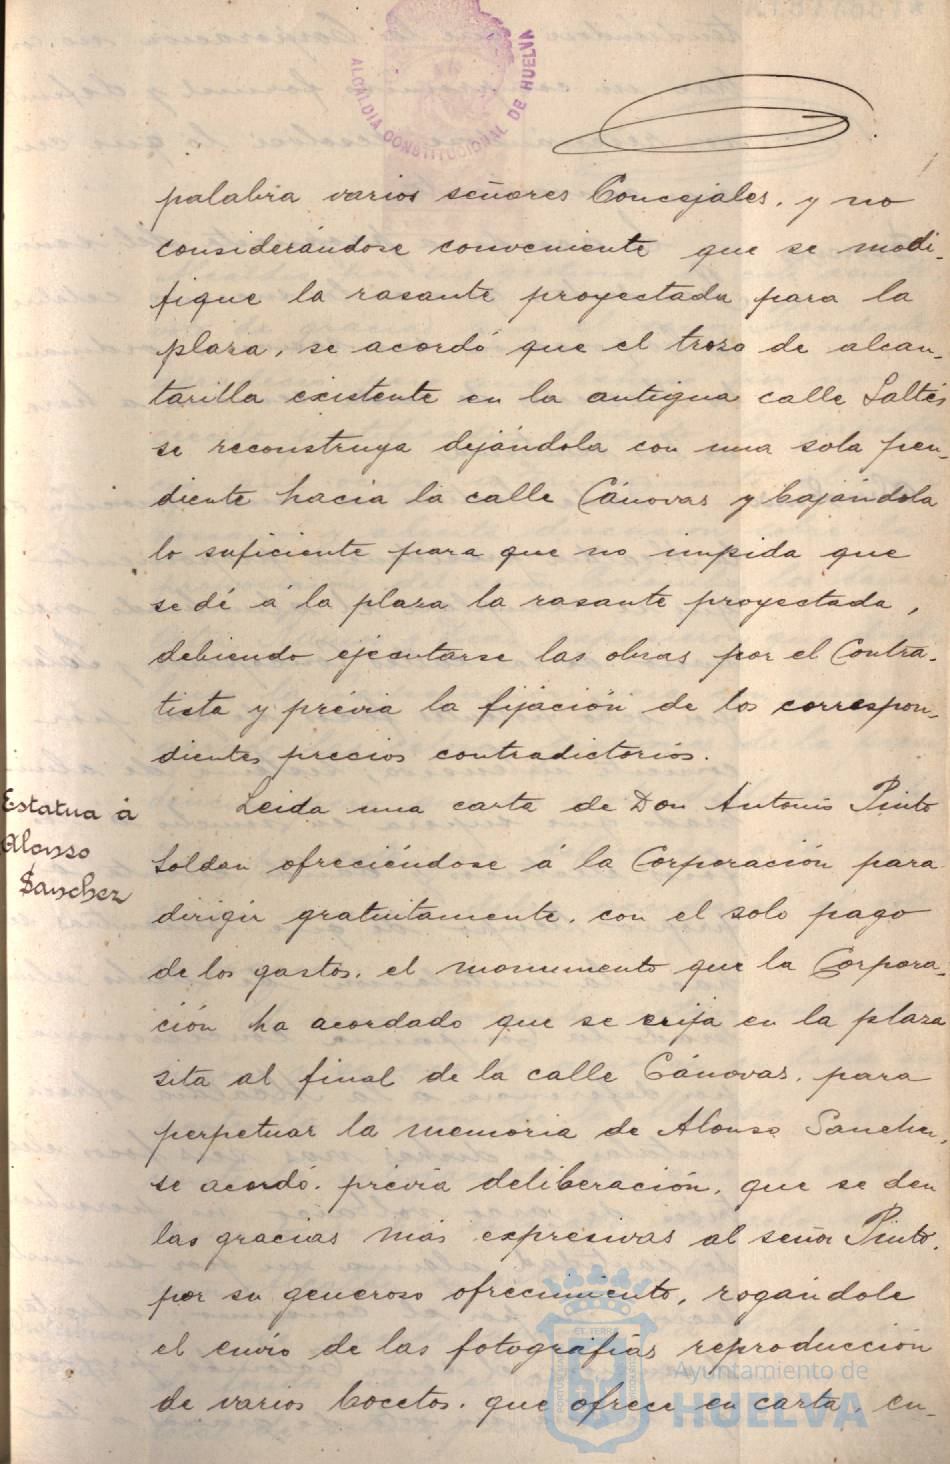 ALCALDIA CONSTITUCIONAL DE HUELVA
palabra varios señores Concejales, y no
considerándose conveniente que se modi-
fique la rasante proyectada para la
plaza, se acordó que el trozo de alcan-
tarilla existente en la antigua calle Saltés
se reconstruya dejándola con una sola pen-
diente hacia la calle Cánovas y bajándola
lo suficiente para que no impida que
se dé á la plaza la rasante proyectada,
debiendo ejecutarse las obras por el Contra-
tista y prévia la fijación de los correspon-
dientes precios contradictorios.
Estatua á
Alonso
Sanchez
Leida una carta de Don Antonio Pinto
Soldan ofreciéndose á la Corporación para
dirigir gratuitamente, con el solo pago
de los gastos, el monumento que la Corpora-
ción ha acordado que se erija en la plaza
sita al final de la calle Cánovas, para
perpetuar la memoria de Alonso Sanchez,
se acordó, prévia deliberación, que se den
las gracias más expresivas al señor Pinto,
por su generoso ofrecimiento, rogándole
el envio de las fotografías reproducción
de varios bocetos, que ofrece en carta, en-
Ayuntamiento de
HUELVA